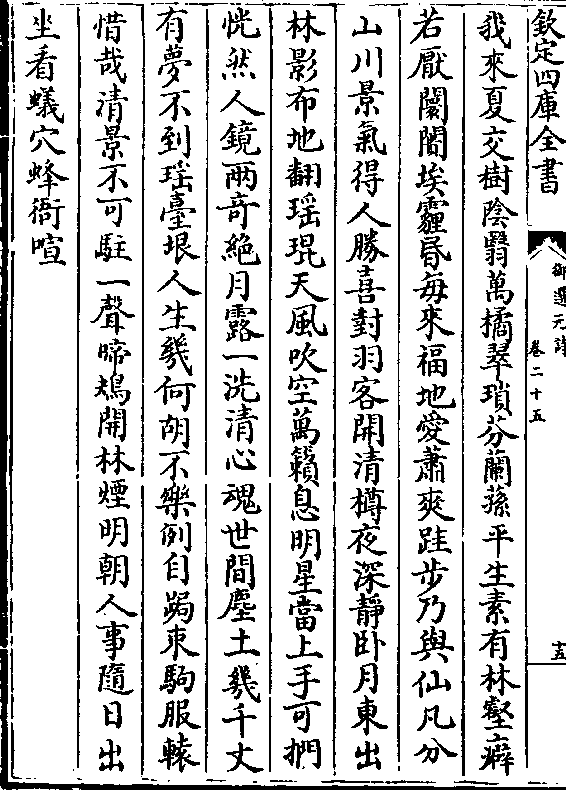 欽定四庫全書
御選元詩
卷二十五
十五
我來夏交樹陰翳萬橘翠瑣芬蘭蓀平生素有林壑癖
若厭闤闠埃霾昏每來福地愛蕭爽跬步乃與仙凡分
山川景氣得人勝喜對羽客開清樽夜深靜卧月東出
林影布地翻瑶琨天風吹空萬籟息明星當上手可捫
恍然人鏡兩竒絶月露一洗清心魂世間塵土幾千丈
有夢不到瑶臺垠人生幾何胡不樂例自跼束駒服轅
惜哉清景不可駐一聲啼鴂開林煙明朝人事隨日出
坐看蟻穴蜂衙喧